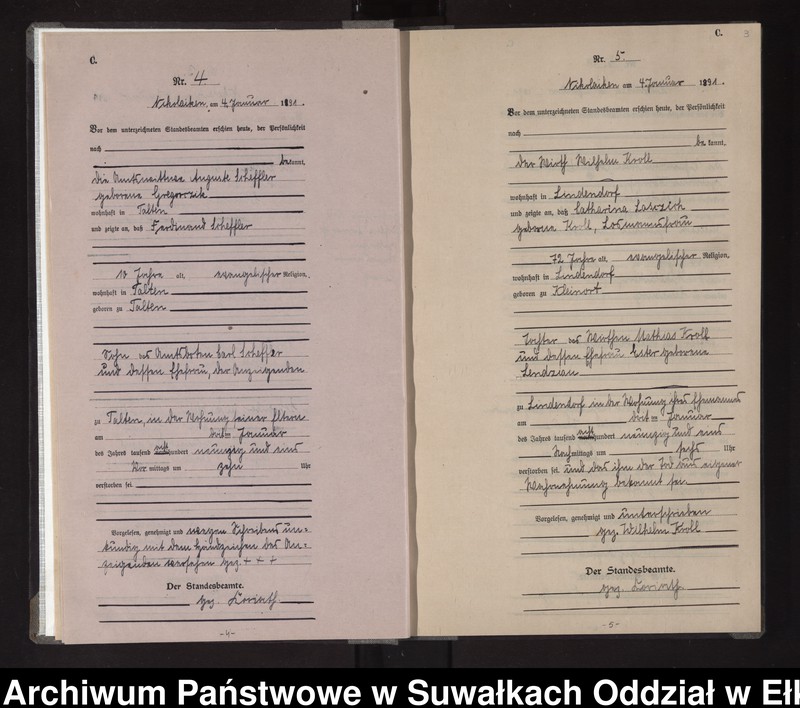 C.
Nr. 4.
Nikolaiken am 4. Januar 1891.
Vor dem unterzeichneten Standesbeamten erschien heute, der Persönlichkeit
nach
bekannt,
die Auguste Scheffler
geborene Gregorzik
wohnhaft in Talten
und zeigte an, daß Ferdinand Scheffler
10 Jahre alt, evangelischer Religion,
wohnhaft in Talten
geboren zu Talten
Sohn des Amtsboten Carl Scheffler
und dessen Ehefrau, der Anzeigenden
zu Talten, in der Wohnung seiner Eltern
am Januar
des Jahres tausend achthundert neunzig und eins
Vormittags um zehn Uhr
verstorben sei
Vorgelesen, genehmigt und wegen Schreibens un-
kundig mit dem Handzeichen des An-
zeigenden versehen gez. + + +
Der Standesbeamte.
gez. Korinth
-4-
C.
3
Nr. 5.
Nikolaiken am 4. Januar 1891.
Vor dem unterzeichneten Standesbeamten erschien heute, der Persönlichkeit
nach
bekannt,
der Wirth Wilhelm Kroll
wohnhaft in Lindendorf
und zeigte an, daß Catharina
geborene Kroll, Losmannsfrau
72 Jahre alt, evangelischer Religion,
wohnhaft in Lindendorf
geboren zu Kleinort
Tochter des Wirthen Mathias Kroll
und dessen Ehefrau Ester geborene
Lendzian
zu Lindendorf in der Wohnung ihres Ehemannes
am Januar
des Jahres tausend achthundert neunzig und eins
Nachmittags um sechs Uhr
verstorben sei und daß ihm der Tod aus eigener
Wahrnehmung bekannt sei
Vorgelesen, genehmigt und unterschrieben
gez. Wilhelm Kroll
Der Standesbeamte.
gez. Korinth
-5-
Archiwum Państwowe w Suwałkach Oddział w Ełk